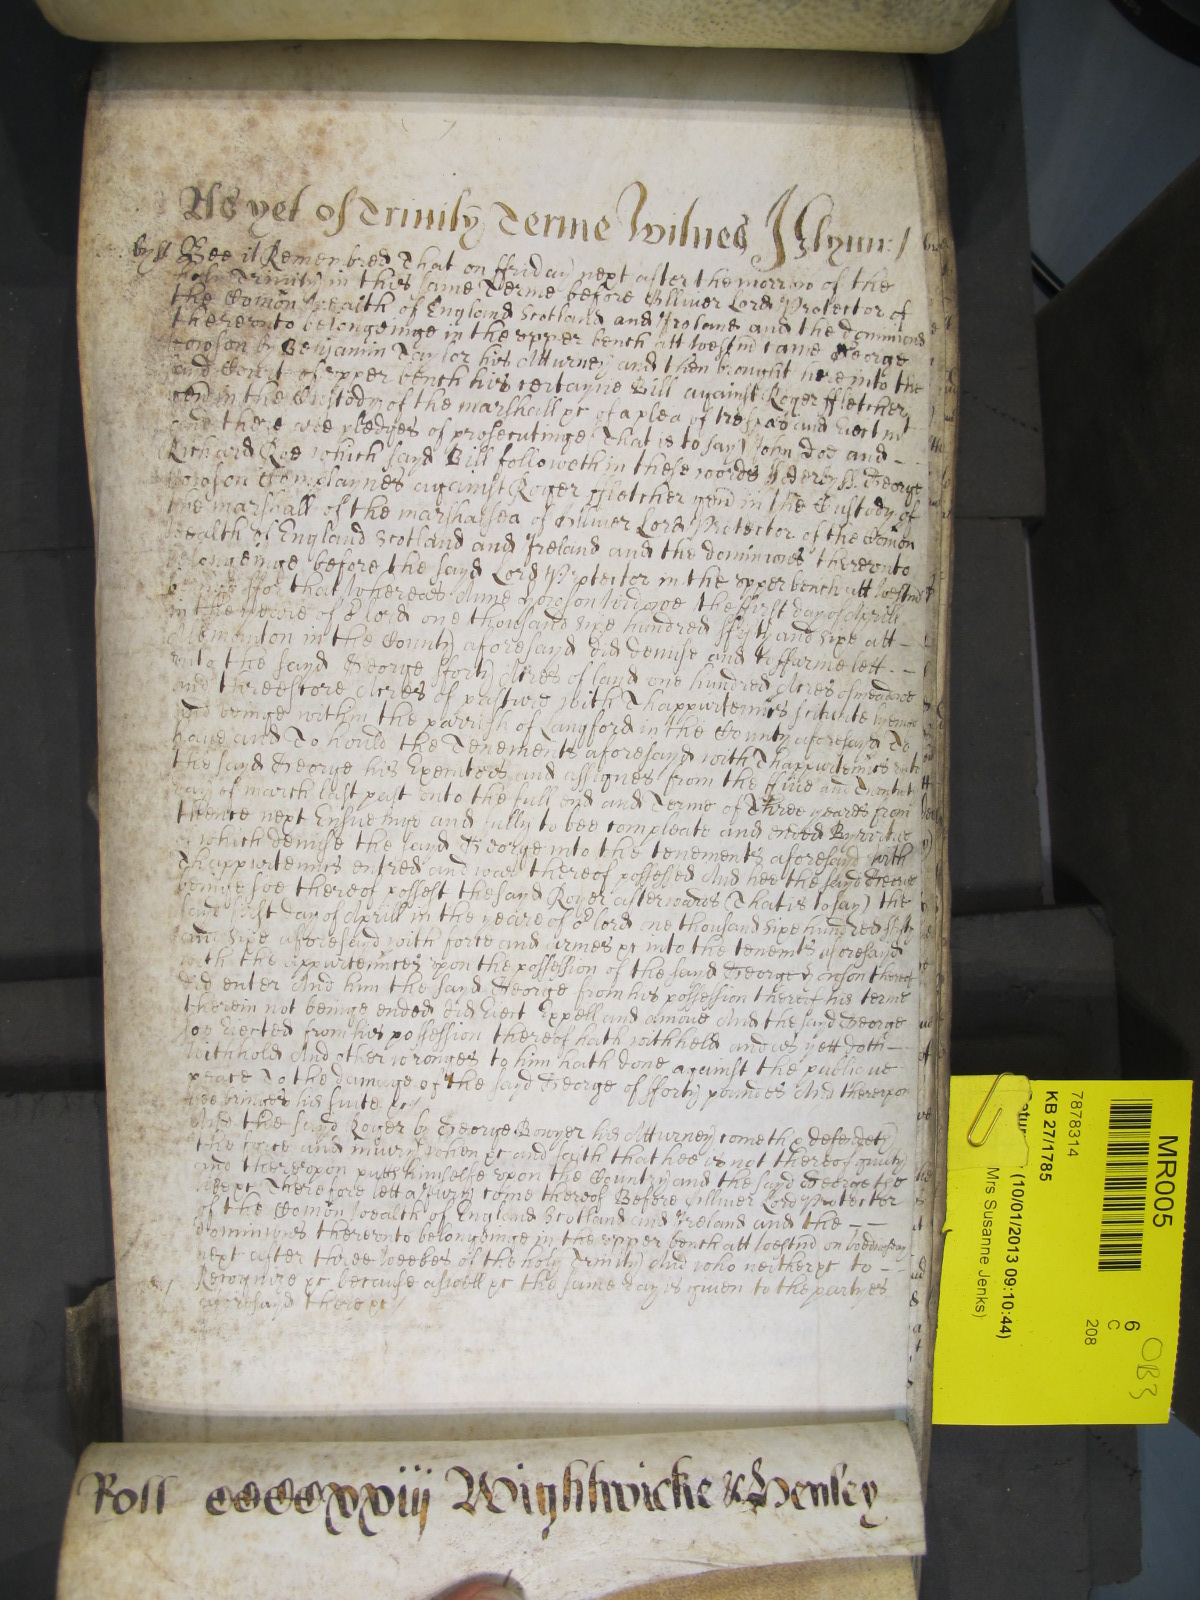 As yet of Trinity Terme Witnes J Glynn /
Derby ss Bee it Remembred That on ffriday next after the morrow of the
holy Trinity in this same Terme before Olliver Lord Protector of
the Comon Wealth of England Scotland and Ireland and the dominions
thereunto belongeinge in the upper bench att Westmr came George
by Benjamin Taylor his Atturney and then brought here into the
sayd Court of upper bench his certayne Bill against Roger ffletcher
gen in the Custody of the marshall &c of a plea of trespas and Eiectmt
and there are pledges of prosecutinge (That is to say) John Doe and - -
Richard Roe which sayd Bill followeth in these words ss derby ss George
Complaines against Roger ffletcher gen in the Custody of
the marshall of the marshalsea of Olliver Lord Protector of the Comon
wealth of England Scotland and Ireland and the dominions thereunto
belongeinge before the sayd Lord Protector in the upper bench att Westmr
beinge ffor that Whereas Anne Widdowe the first day of Aprill
in the yeare of or lord one thousand sixe hundred ffifty and sixe att -
in the County aforesayd did demise and to ffarme lett - -
unto the sayd George fforty Acres of land one hundred Acres of meadowe
and threescore Acres of pasture with Thappurtenncs scituate lyeinge
and beinge within the parrish of Langford in the County aforesayd To
have and To hould the Tenements aforesayd with Thappurtenncs unto
the sayd George his Executors and assignes from the ffive and Twentith
day of march last past unto the full end and Terme of Three yeares from
thence next Ensueinge and fully to bee compleate and ended By virtue
of which demise the sayd George into the tenements aforesayd with
Thappurtenncs entred and was thereof possessed And hee the sayd George
beinge soe thereof possest the sayd Roger afterwards (That is to say) the
same first day of Aprill in the yeare of or lord one thousand sixe hundred ffifty
and sixe aforesayd with force and armes &c into the tenemts aforesayd
with the appurtennces upon the possession of the sayd George thereof
did enter And him the sayd George from his possession thereof his terme
therein not beinge ended did Eiect Expell and amove And the sayd George
soe Eiected from his possession thereof hath withheld and as yett doth -
withhold And other wronges to him hath done against the publique
peace To the damage of the sayd George of fforty poundes And thereupon
hee bringes his suite &c /
And the sayd Roger by George Bowyer his Atturney cometh & defendeth
the force and iniury when &c and sayth that hee is not thereof guilty
and thereupon putts himselfe upon the Country and the sayd George
likewise &c Therefore lett a Jury come thereof Before Olliver Lord Protector
of the Comon Wealth of England Scotland and Ireland and the - -
Dominions thereunto belongeinge in the upper bench att Westmr on Wednesday
next after three Weekes of the holy Trinity And who neither &c to - -
Recognize &c because aswell &c the same day is given to the partyes
aforesayd there &c /
Roll ccccxxviij Wightwicke & Henley
MR005
6
C
208
OB3
7878314
KB 27/1785
(10/01/2013 09:10:44)
Mrs Susanne Jenks)